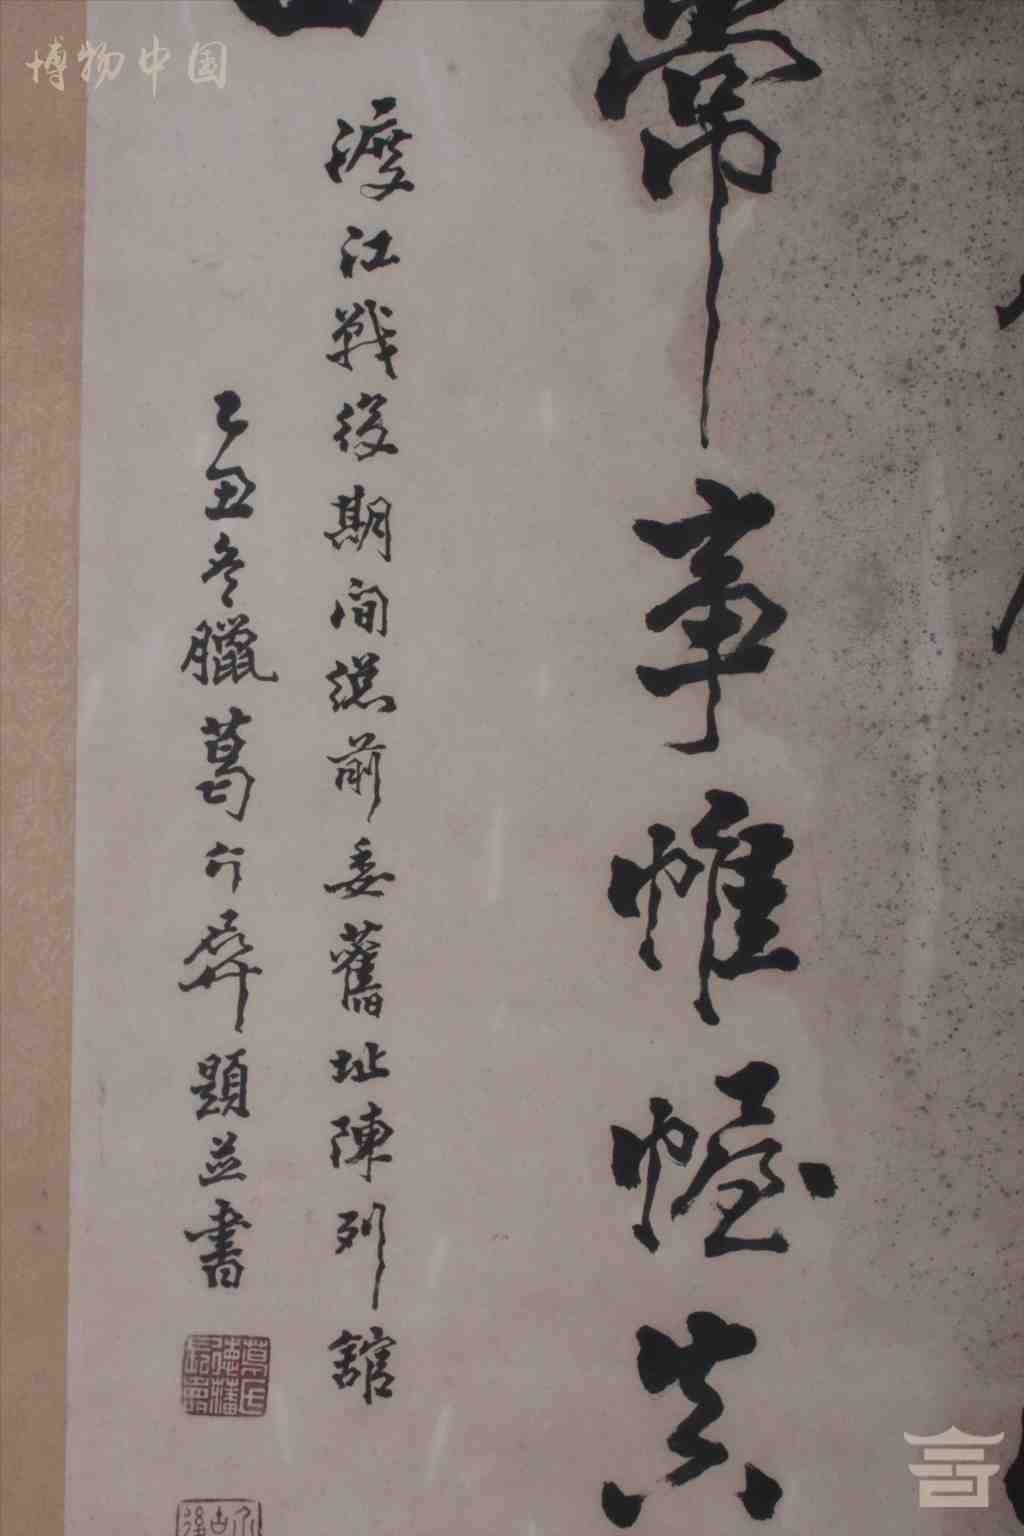 博物中国
常事帷幄共
渡江戰後期間總前委舊址陳列館
乙丑冬臘葛介屏題並書